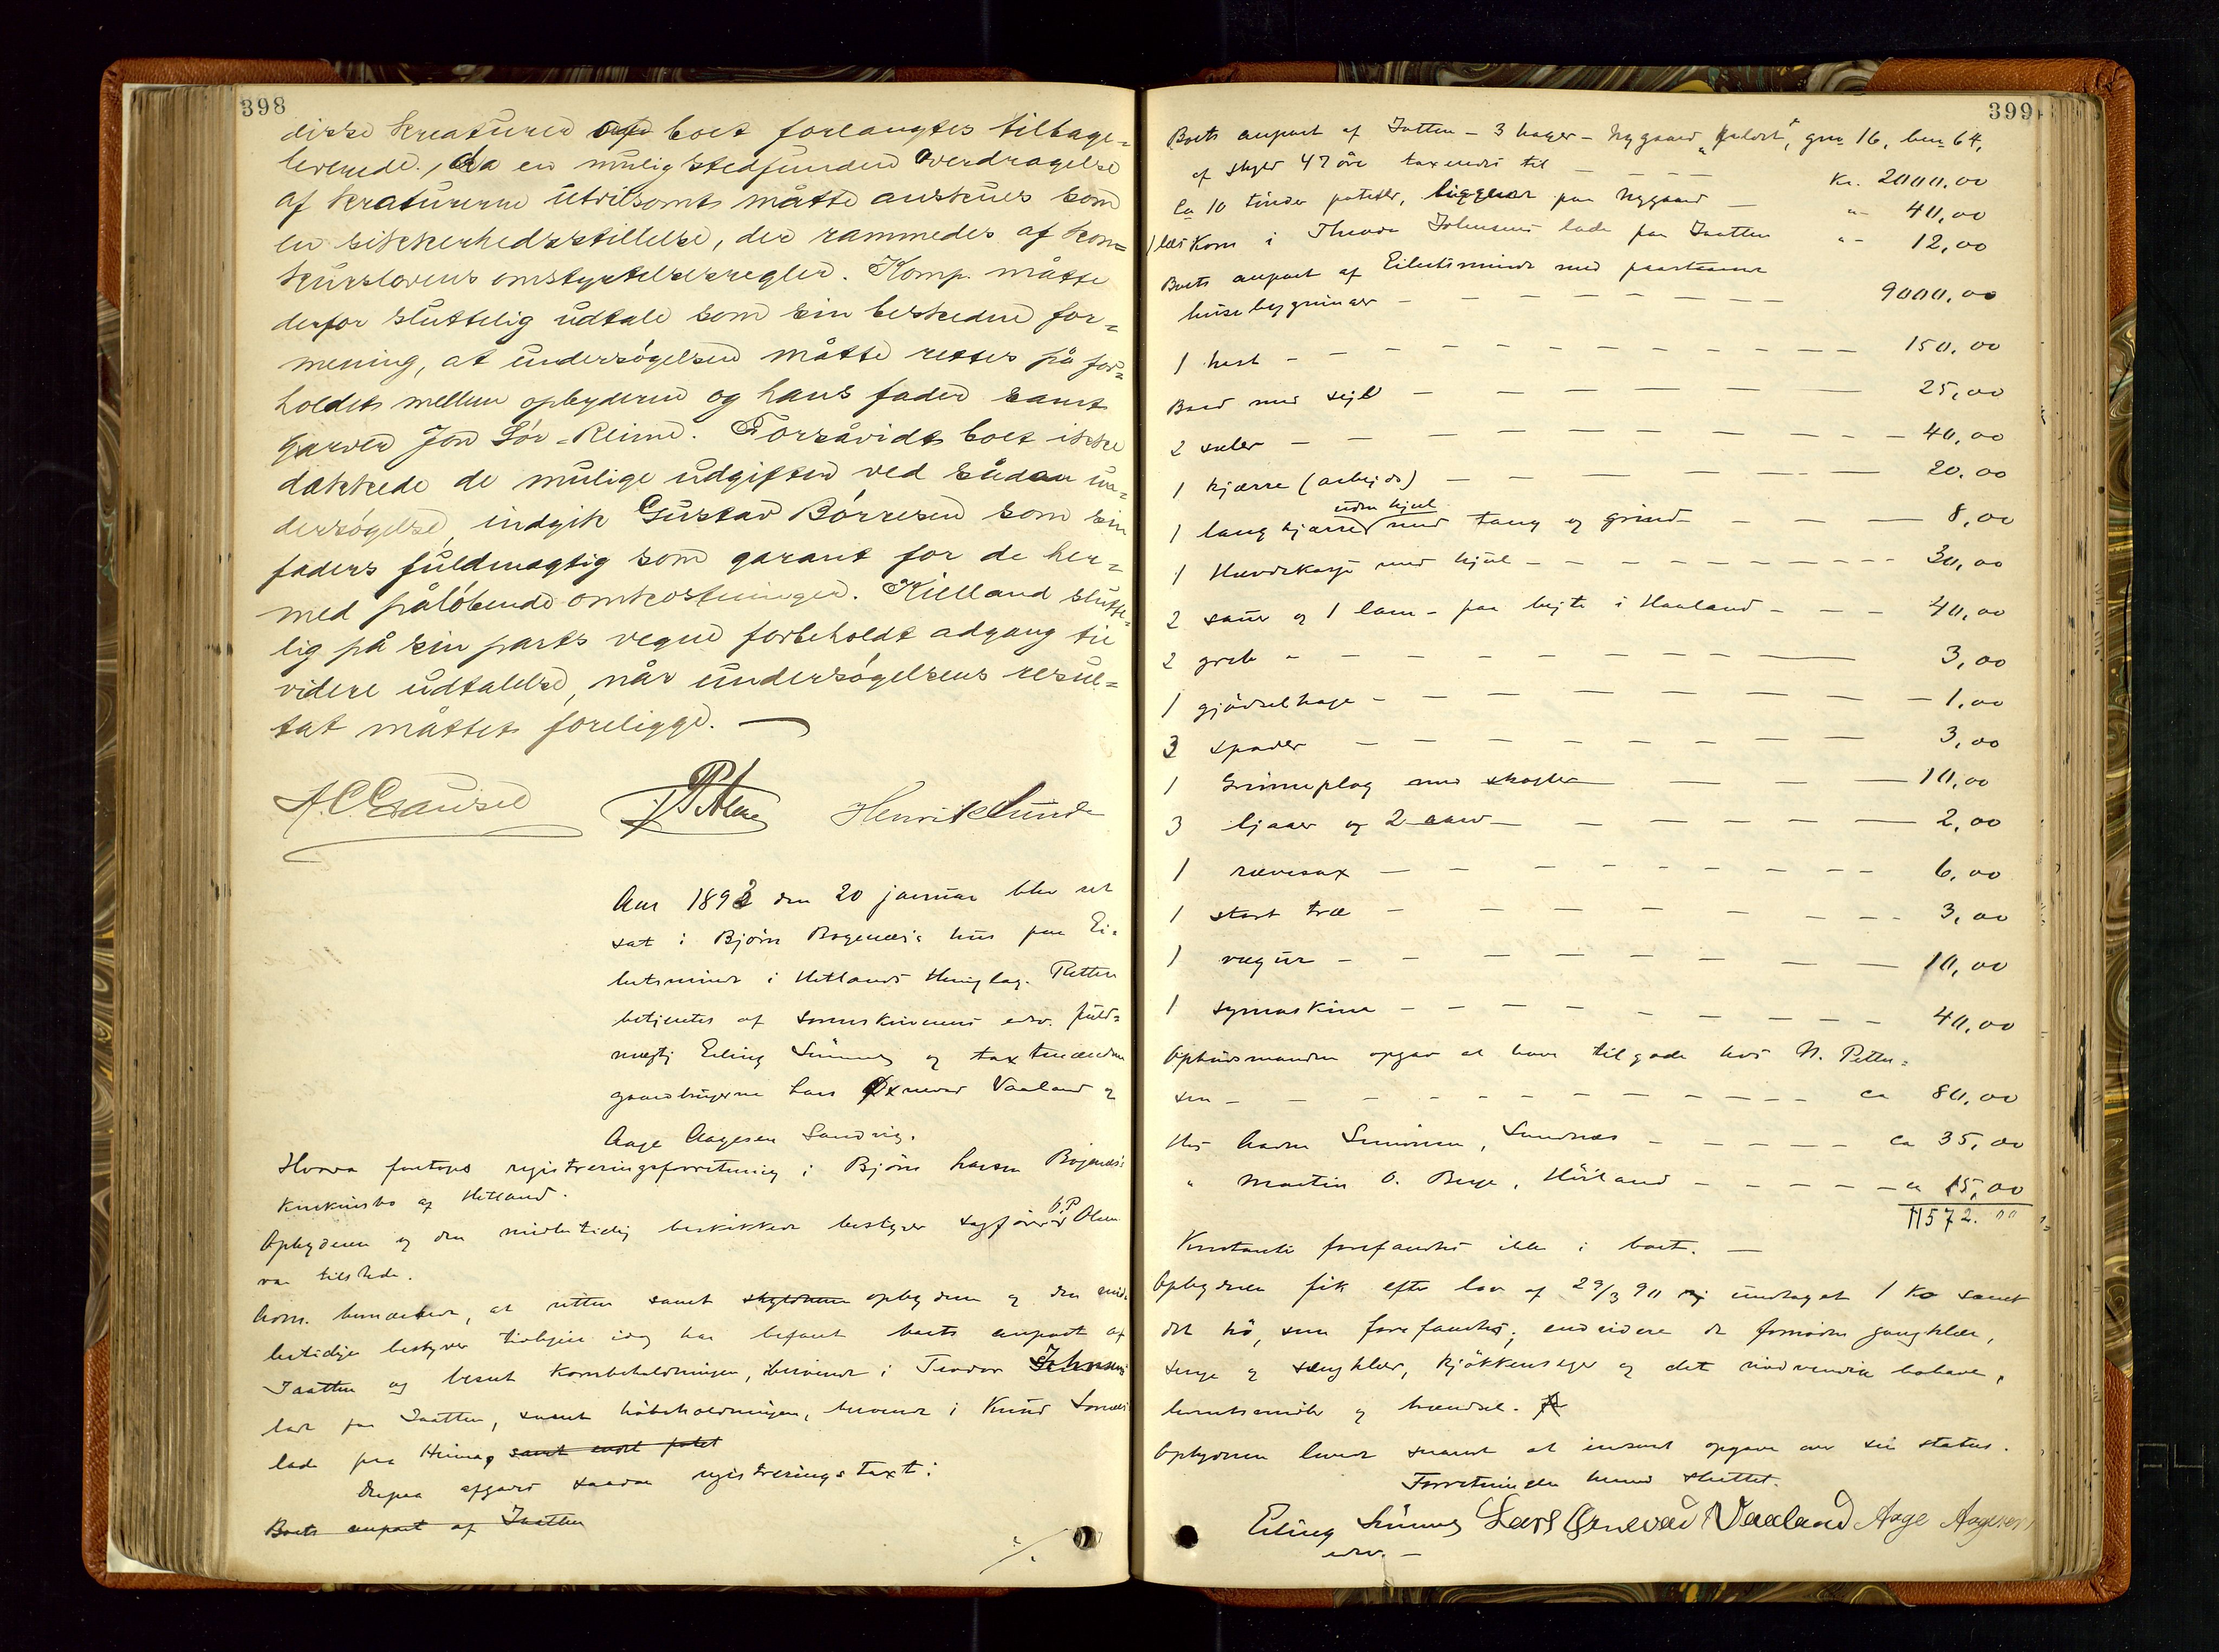 398
disse kreaturer af boet forlangtes tilbage=
leverede, da en mulig stedfunden overdragelse
af kreaturerne utvilsomt måtte anskues som
en sikkerhedsstillelse, der rammedes af kon=
kurslovens omstyrtelsesregler. Komp. måtte
derfor sluttelig udtale som sin beskedne for=
mening, at undersøgelsen måtte rettes på for=
holdet mellem opbyderen og hans fader samt
garver Jon Sør-Reime. Forsåvidt boet ikke
dækkede de mulige udgifter ved sådan un=
dersøgelse, indgik Gustav Børresen som sin
faders fuldmægtig som garant for de her=
med påløbende omkostninger. Kielland slutte=
lig på sin parts vegne forbeholdt adgang til
videre udtalelse, når undersøgelsens resul=
tat måttet foreligge. —
Henrik Lunde
Aar 1892 den 20 januar blev ret
sat i Bjørn Bogenæs's hus paa Ei=
lertsminde i Hetlands thinglag. Retten
betjentes af sorenskriverens edsv. fuld=
mægtig Erling Sømme og taxtmændene
gaardbrugerne Lars Øxnevad Vaaland og
Aage Aagesen Sandvig.
Hvorda foretoges registreringsforretning i Bjørn Larsen Bogenæs's
konkursbo af Hetland.
Opbyderen og den midlertidig beskikkede bestyrer sagfører O.P. Olsen
var tilstede.
Adm. bemærkede, at retten samt skyldneren opbyderen og den mid=
lertidige bestyrer tidligere idag har befaret boets anpart af
Jaatten og beset kornbeholdningen, beroende i Teodor Johnsens
lade paa Jaatten, samt høbeholdningen, beroende i Knud
lade paa Hinna, samt endel potet
Derpaa afgaves saadan registreringstaxt:
Boets anpart af Jaatten
·/.
399
Boets anpart af Jatten – 3 hager – Nygaard „ gno 16, bno 64,
af skyld 47 øre taxeredes til — — — — Kr. 2000.00
Ca 10 tønder poteter, liggende paa Nygaard — "- 40,00
1 læs Korn i Theodor Johnsens lade paa Jaatten "- 12,00
Boets anpart af Eilertsminde med paastaaende
husebygninger — — — — — — 9000,00
1 hest — — — — — — 150.00
Baad med sejl — — — — 25,00
2 seler — — — — — 40,00
1 kjærre (arbejds) — — — — 20.00
1 lang kjærre uden hjul med tang og grind — — — 8,00
1 med hjul — — — — — 30,00
2 sauer og 1 lam – paa bejte i Haaland — — — 40,00
2 greb — — — — — — 3,00
1 gjødselhage — — — — — 1.00
3 spader — — — — — 3,00
1 plog med skagler — — — 10,00
3 ljaaer og 2 — — — — 2,00
1 rævesax — — — — — 6,00
1 stort træ — — — — — 3,00
1 vægur — — — — — 10,00
1 symaskine — — — — — 40,00
Opbudsmanden opgav at have tilgode hos N. Petter=
sen — — — — — — ca 80,00
Hos Simonsen, Sandnæs — — — — ca 35,00
" Martin O. Berge, Hetland — — — — ca 15,00
11572.00
Kontanter forefandtes ikke i boet. —
Opbyderen fik efter lov af 29/3 90 undtaget 1 ko samt
det hø, som forefandtes; endvidere de fornødne gangklær,
senge og sengklær, kjøkkensager og det nødvendige bohave,
levnetsmidler og brændsel.
Opbyderen lovede snarest at indsend opgave over sin status.
Forretningen hermed sluttet.
Erling Sømme Lars Øxnevad Vaaland Aage Aagesen
edsv. —